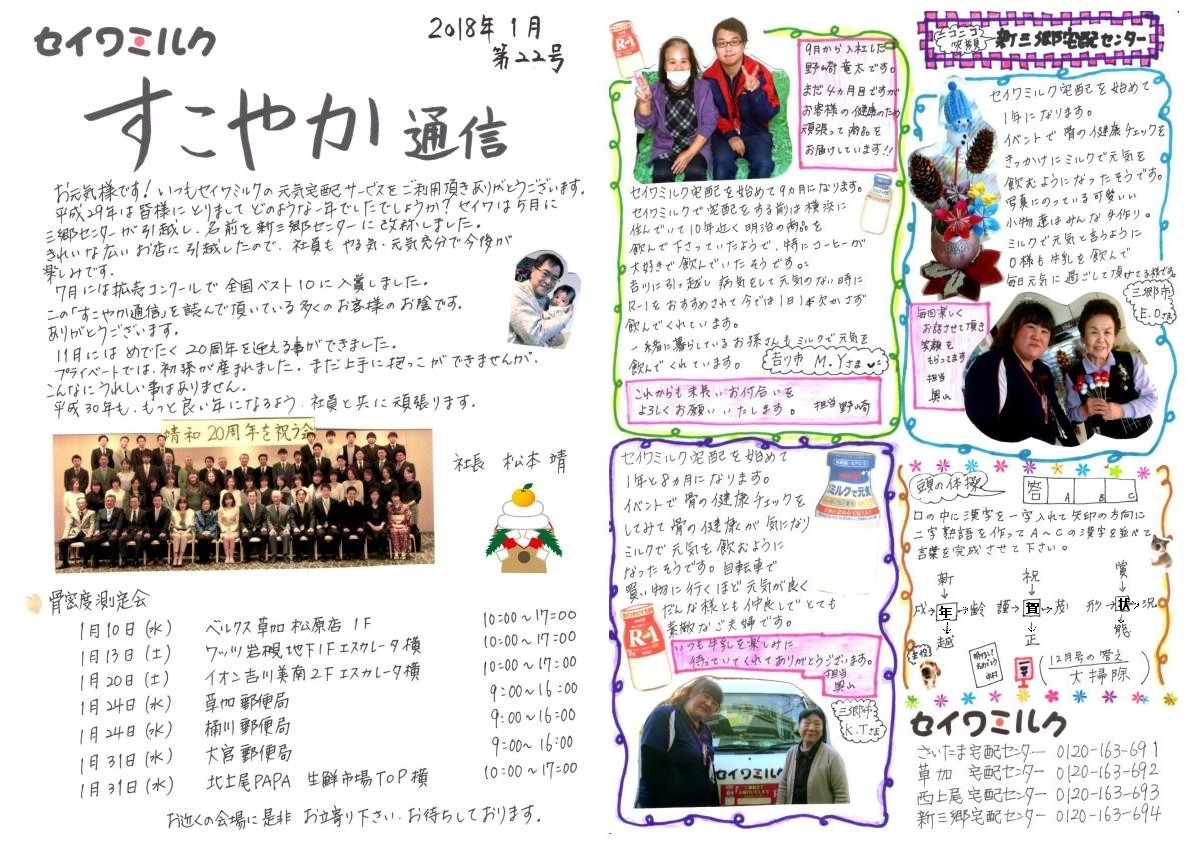 セイワミルク
2018年1月
第22号
すこやか通信
お元気様です！いつもセイワミルクの元気宅配サービスをご利用頂きありがとうございます。
平成29年は皆様にとりましてどのような一年でしたでしょうか？セイワは5月に
三郷センターが引越し、名前を新三郷センターに改称しました。
きれいな広いお店に引越したので、社員もやる気・元気充分で今後が
楽しみです。
7月には拡売コンクールで全国ベスト10に入賞しました。
この「すこやか通信」を読んで頂いている多くのお客様のお陰です。
ありがとうございます。
11月にはめでたく20周年を迎える事ができました。
プライベートでは、初孫が産まれました。まだ上手に抱っこができませんが、
こんなにうれしい事はありません。
平成30年も、もっと良い年になるよう、社員と共に頑張ります。
靖和20周年を祝う会
社長 松本 靖
骨密度測定会
1月10日(水) ベルクス草加松原店 1F 10:00～17:00
1月13日(土) ワッツ岩槻地下1Fエスカレータ横 10:00～17:00
1月20日(土) イオン吉川美南2Fエスカレータ横 10:00～17:00
1月24日(水) 草加郵便局 9:00～16:00
1月24日(水) 桶川郵便局 9:00～16:00
1月31日(水) 大宮郵便局 9:00～16:00
1月31日(水) 北上尾PAPA 生鮮市場TOP横 10:00～17:00
お近くの会場に是非お立寄り下さい。お待ちしております。
R-1
9月から入社した
野崎竜太です。
まだ4ヵ月目ですが
お客様の健康のため
頑張って商品を
お届けしています!!
セイワミルク宅配を始めて9ヵ月になります。
セイワミルクで宅配をする前は横浜に
住んでいて10年近く明治の商品を
飲んで下さっていたようで、特にコーヒーが
大好きで飲んでいたそうです。
吉川に引っ越し病気をして元気のない時に
R-1をおすすめされて今では1日1本欠かさず
飲んでくれています。
一緒に暮らしているお孫さんもミルクで元気を
飲んでくれています。
吉川市 M.Yさま
これからも末長いお付合いを
よろしくお願いいたします。 担当 野崎
セイワミルク宅配を始めて
1年と8ヵ月になります。
イベントで骨の健康チェックを
してみて骨の健康が気になり
ミルクで元気を飲むように
なったそうです。自転車で
買い物に行くほど元気が良く
だんな様とも仲良しでとても
素敵なご夫婦です。
ミルクで元気
R-1
いつも牛乳を楽しみに
待っていてくれてありがとうございます。
担当
奥山
三郷市
K.Tさま
セイワミルク
ニコニコ
笑顔
新三郷宅配センター
セイワミルク宅配を始めて
1年になります。
イベントで骨の健康チェックを
きっかけにミルクで元気を
飲むようになったそうです。
写真にのっている可愛い
小物達はみんな手作り。
ミルクで元気と言うように
O様も牛乳を飲んで
毎日元気に過ごして頂けてる様です。
三郷市
E.Oさま
毎回楽しく
お話させて頂き
笑顔を
もらってます
担当
奥山
頭の体操
答 A B C
口の中に漢字を一字入れて矢印の方向に
二字熟語を作ってA～Cの漢字を並べて
言葉を完成させて下さい。
新 祝 賞
成→年→齢 謹→賀→茂 形→状→況
越 正 態
12月号の答え
大掃除
セイワミルク
さいたま宅配センター 0120-163-691
草加 宅配センター 0120-163-692
西上尾宅配センター 0120-163-693
新三郷宅配センター 0120-163-694